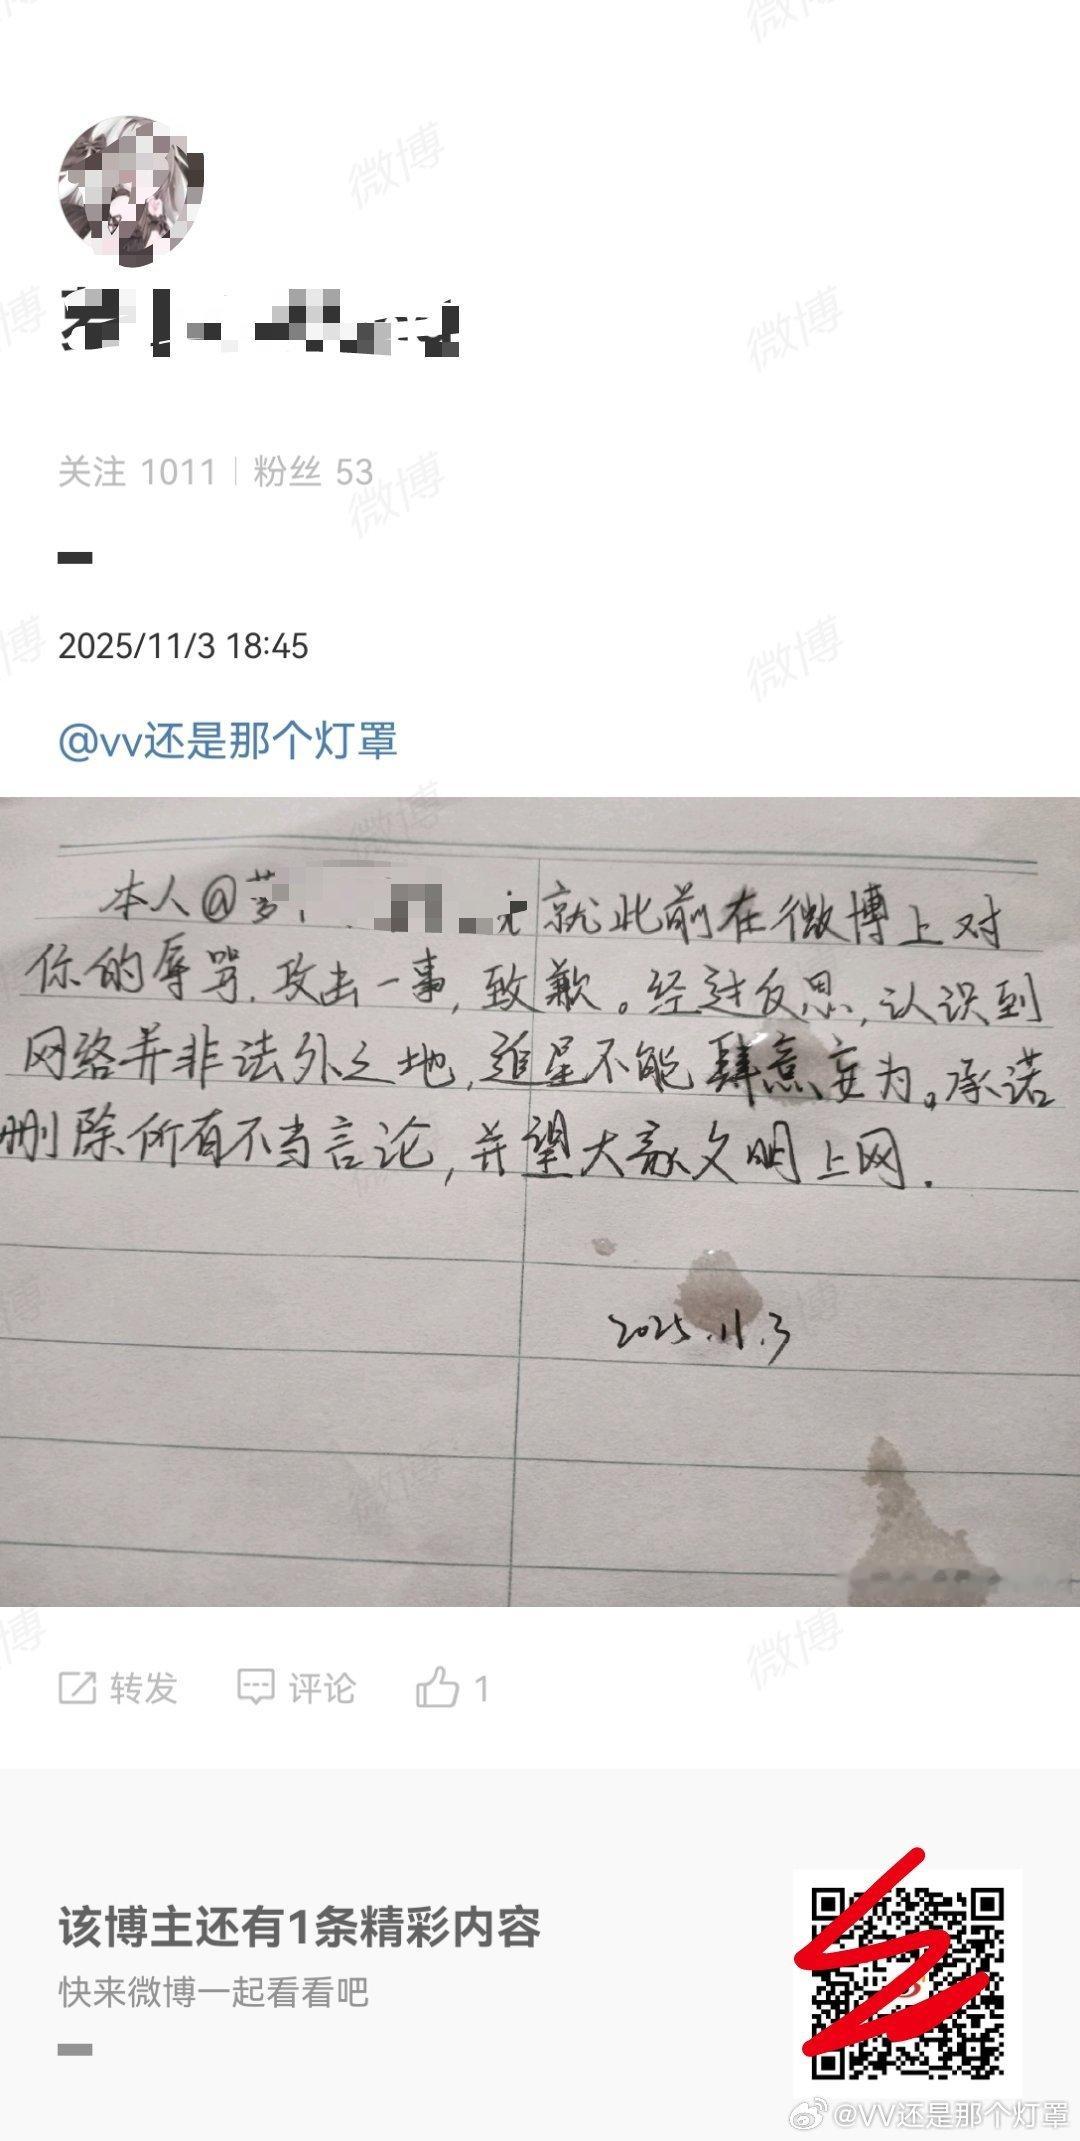 关注 1011 | 粉丝 53
2025/11/3 18:45
@vv还是那个灯罩
本人@ 就此前在微博上对
你的辱骂、攻击一事,致歉。经过反思,认识到
网络并非法外之地,追星不能肆意妄为。承诺
删除所有不当言论,并望大家文明上网.
2025.11.3
转发 评论 1
该博主还有1条精彩内容
快来微博一起看看吧
@VV还是那个灯罩
微博